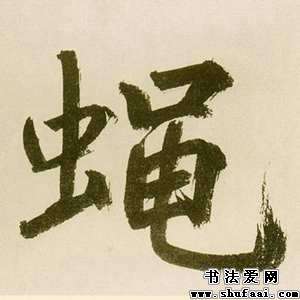 蝇
书法爱网
www.shufaai.com